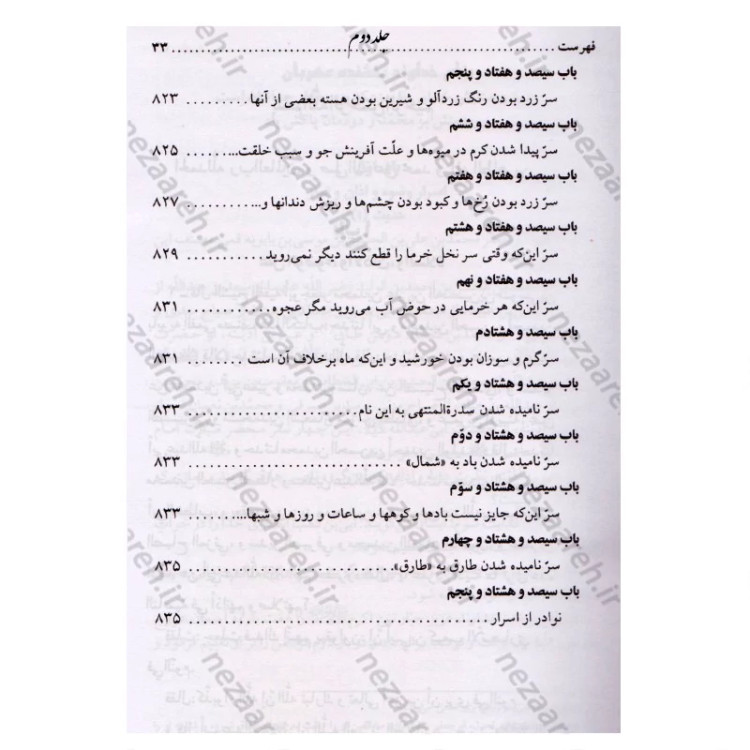 جلد دوم
فهرست ........................................................ ۳۳
باب سیصد و هفتاد و پنجم
سرّ زرد بودن رنگ زردآلو و شیرین بودن هسته بعضی از آنها ......... ۸۲۳
باب سیصد و هفتاد و ششم
سرّ پیدا شدن کرم در میوه‌ها و علّت آفرینش جو و سبب خلقت... ...... ۸۲۵
باب سیصد و هفتاد و هفتم
سرّ زرد بودن رُخ‌ها و کبود بودن چشم‌ها و ریزش دندانها و... ....... ۸۲۷
باب سیصد و هفتاد و هشتم
سرّ این‌که وقتی سر نخل خرما را قطع کنند دیگر نمی‌روید ........... ۸۲۹
باب سیصد و هفتاد و نهم
سرّ این‌که هر خرمایی در حوض آب می‌روید مگر عجوه ............ ۸۳۱
باب سیصد و هشتادم
سرّ گرم و سوزان بودن خورشید و این‌که ماه برخلاف آن است ........ ۸۳۱
باب سیصد و هشتاد و یکم
سرّ نامیده شدن سدرةالمنتهی به این نام .................... ۸۳۳
باب سیصد و هشتاد و دوّم
سرّ نامیده شدن باد به «شمال» ............................ ۸۳۳
باب سیصد و هشتاد و سوّم
سرّ این‌که جایز نیست بادها و کوهها و ساعات و روزها و شبها... ....... ۸۳۳
باب سیصد و هشتاد و چهارم
سرّ نامیده شدن طارق به «طارق». ........................... ۸۳۵
باب سیصد و هشتاد و پنجم
نوادر از اسرار ........................................ ۸۳۵
nezaareh.ir